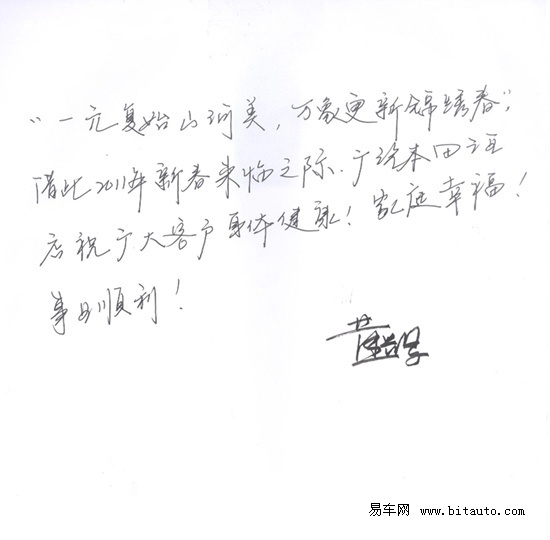 “一元复始山河美，万象更新锦绣春”，
借此2011年新春来临之际．广汽本田
店祝广大客户身体健康！家庭幸福！
事业顺利！
易车网 www.bitauto.com